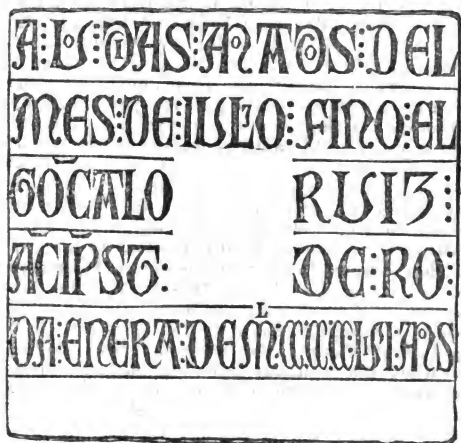 A : DIAS : DEL
MES : DE : IULIO : FINO : EL
GOCALO RUIZ :
ACIPST : DE : RO :
DA : EN ERA : DE M : CCC : LVI : AOS